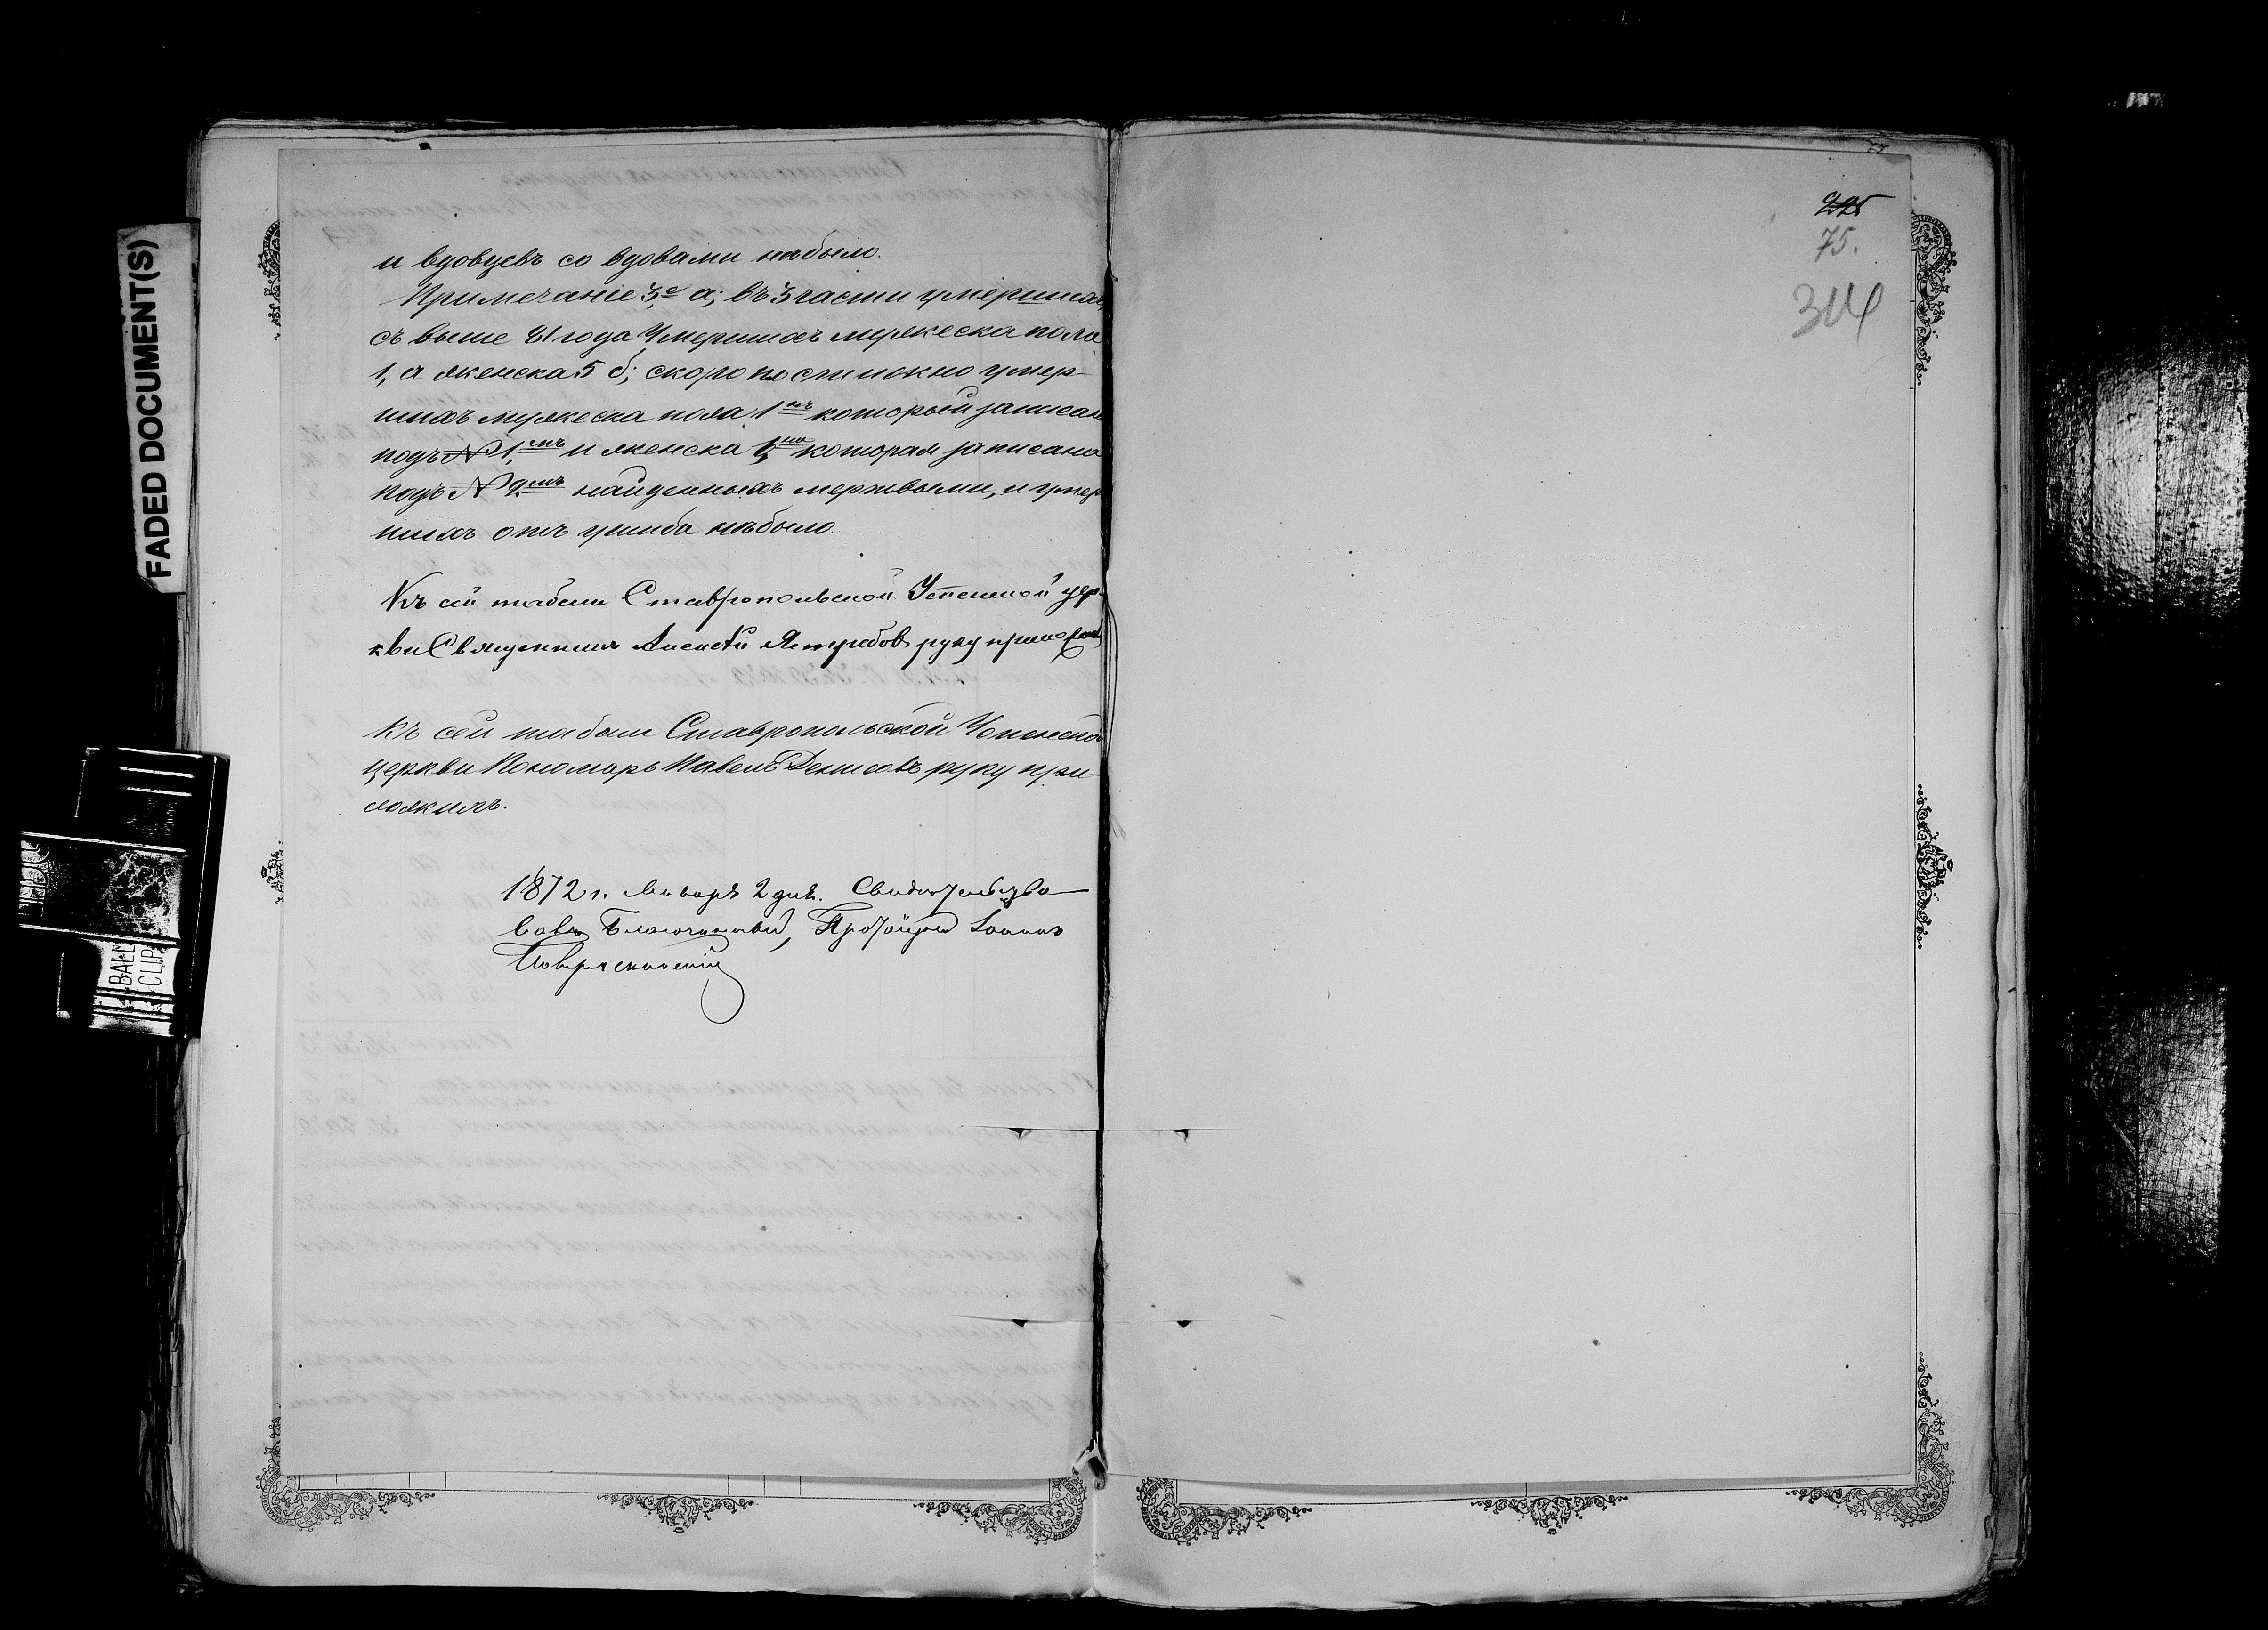 FADED DOCUMENT(S)
и вдовцевъ со вдовами небыло.
Примечаніе 3,е а; въ 3 части умершихъ,
съ выше 81 года Умершихъ мужеска пола
1, а женска 5 б; скоро постижно умер-
шихъ мужеска пола 1нъ который записанъ
подъ № 1,мъ и женска 1,на которая записана
подъ № 9,мъ найденныхъ мертвыми, и умер
шихъ отъ ушиба небыло.
Къ сей табели Ставропольской Успенской цер-
кви Священникъ Алексѣй Ястребовъ руку приложилъ
Къ сей табели Ставропольской Успенской
церкви Пономарь Павелъ Денисовъ руку при-
ложилъ.
1872 г. Января 2 дня. Свидѣтельство-
валъ Благочинный, Протоіерей Іоаннъ
225
75.
314
BALL
CLIP